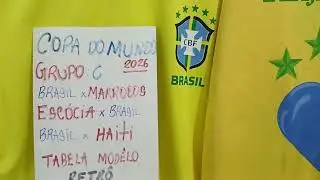 COPA DO MUNDO
2026
GRUPO C
BRASIL x MARROCOS
ESCÓCIA x BRASIL
BRASIL x HAITI
TABELA MODÊLO
RETRÔ
CBF
BRASIL